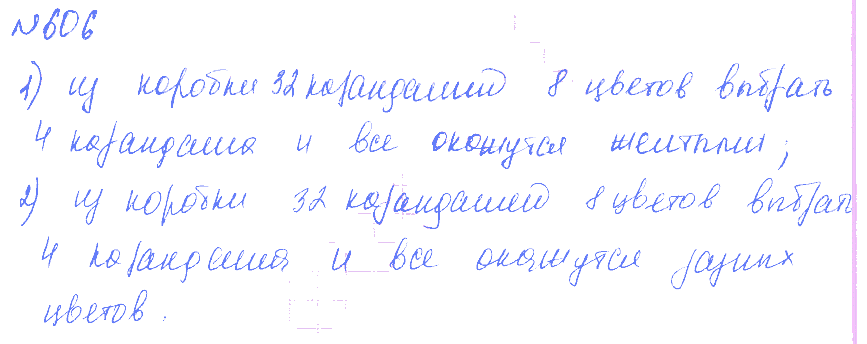 №606
1) из коробки 32 карандашей 8 цветов выбрать
4 карандаша и все окажутся желтыми;
2) из коробки 32 карандашей 8 цветов выбрать
4 карандаша и все окажутся разных
цветов.